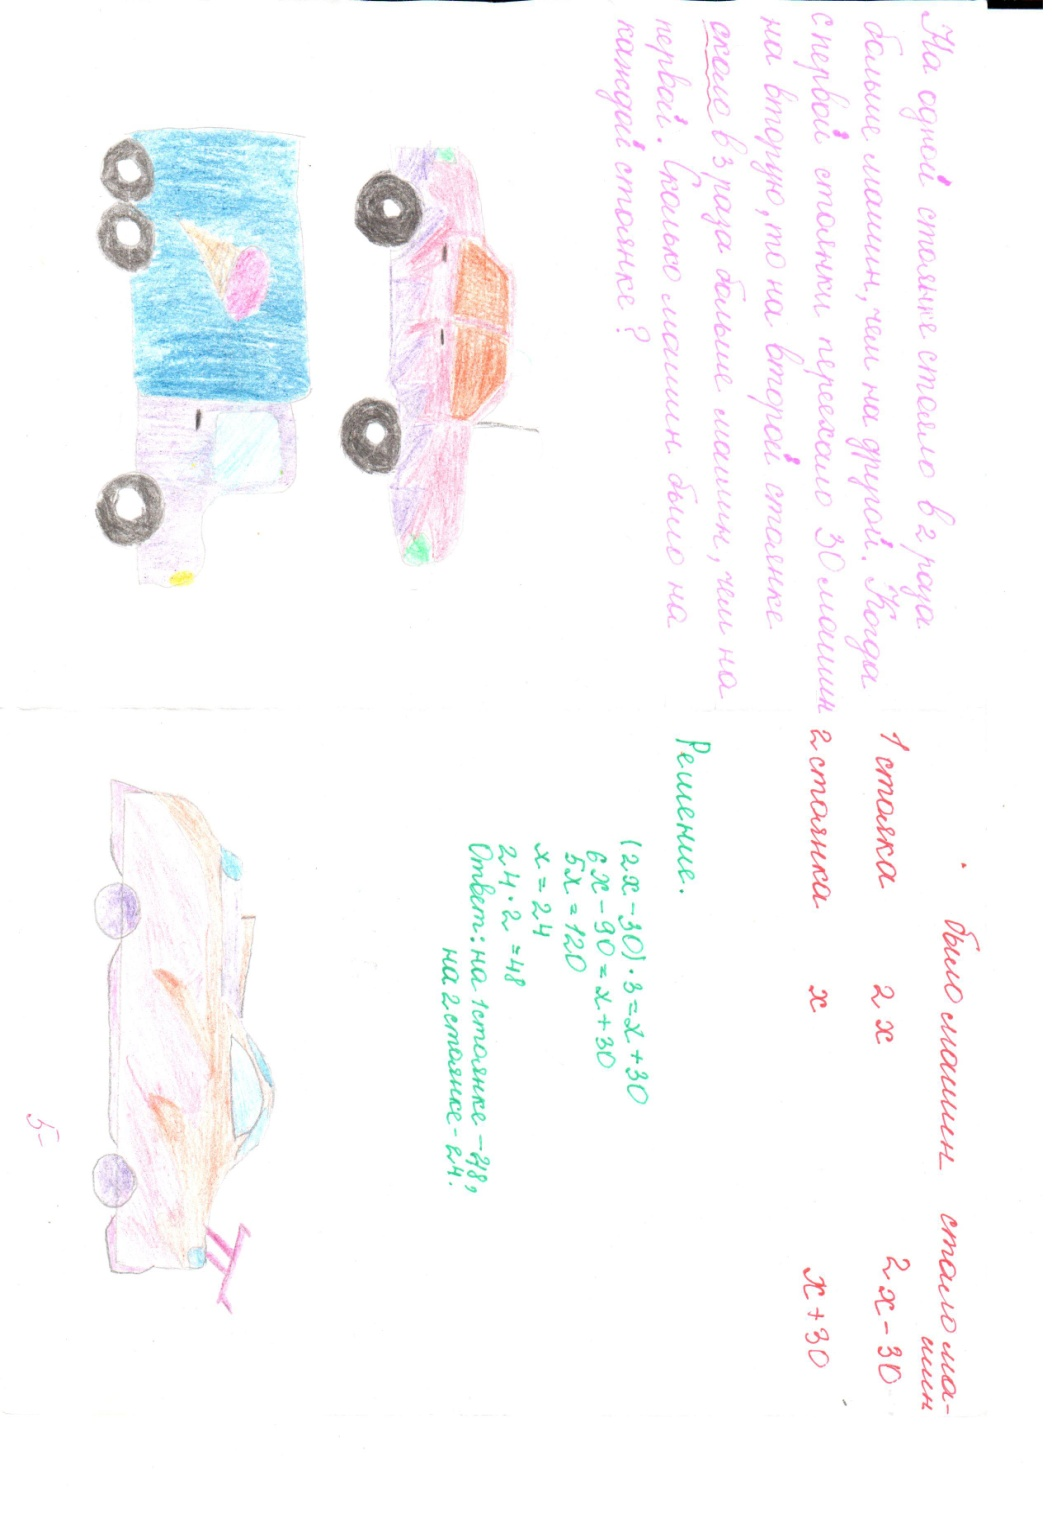 На одной стоянке стояло в 2 раза
больше машин, чем на другой. Когда
с первой стоянки переехало 30 машин
на вторую, то на второй стоянке
стало в 3 раза больше машин, чем на
первой. Сколько машин было на
каждой стоянке?
было машин стало ма-
шин
1 стоянка 2x 2x-30
2 стоянка x x+30
Решение.
(2x-30)·3=x+30
6x-90=x+30
5x=120
x=24
24·2=48
Ответ: на 1 стоянке - 48,
на 2 стоянке - 24.
5-